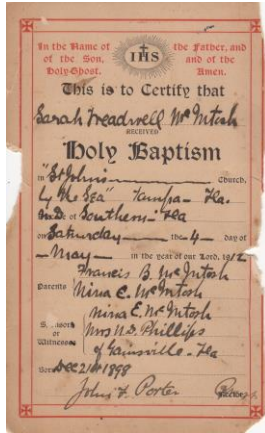 In the Name of the Father, and
of the Son, and of the
Holy Ghost. Amen.
IHS
This is to Certify that
Sarah Treadwell McIntosh
RECEIVED
Holy Baptism
in "St Johns Church,
by the Sea" Tampa - Fla.
of Southern - Fla
on Saturday the 4 day of
May in the year of our Lord, 1912
Francis B. McIntosh
Parents Nina C. McIntosh
Nina C. McIntosh
or Mrs Phillips
Witnesses
of Gainsville - Fla
Dec 21st 1898
Porter